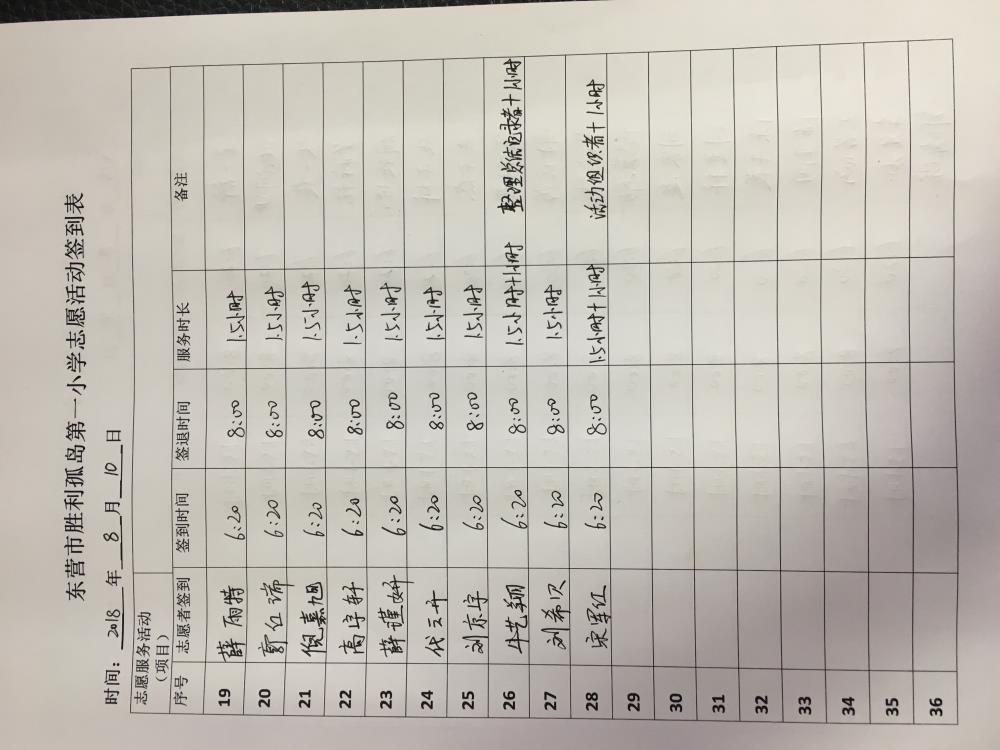 东营市胜利孤岛第一小学志愿活动签到表
时间：2018年8月10日
志愿服务活动（项目）
序号 志愿者签到 签到时间 签退时间 服务时长 备注
19 薛雨特 6:20 8:00 1.5小时
20 郭仁瑞 6:20 8:00 1.5小时
21 倪嘉旭 6:20 8:00 1.5小时
22 高宇轩 6:20 8:00 1.5小时
23 薛谨妍 6:20 8:00 1.5小时
24 代云丹 6:20 8:00 1.5小时
25 刘东宇 6:20 8:00 1.5小时
26 牛艺翔 6:20 8:00 1.5小时+1小时 整理总结记录者+1小时
27 刘希贝 6:20 8:00 1.5小时
28 宋军红 6:20 8:00 1.5小时+1小时 活动组织者+1小时
29
30
31
32
33
34
35
36